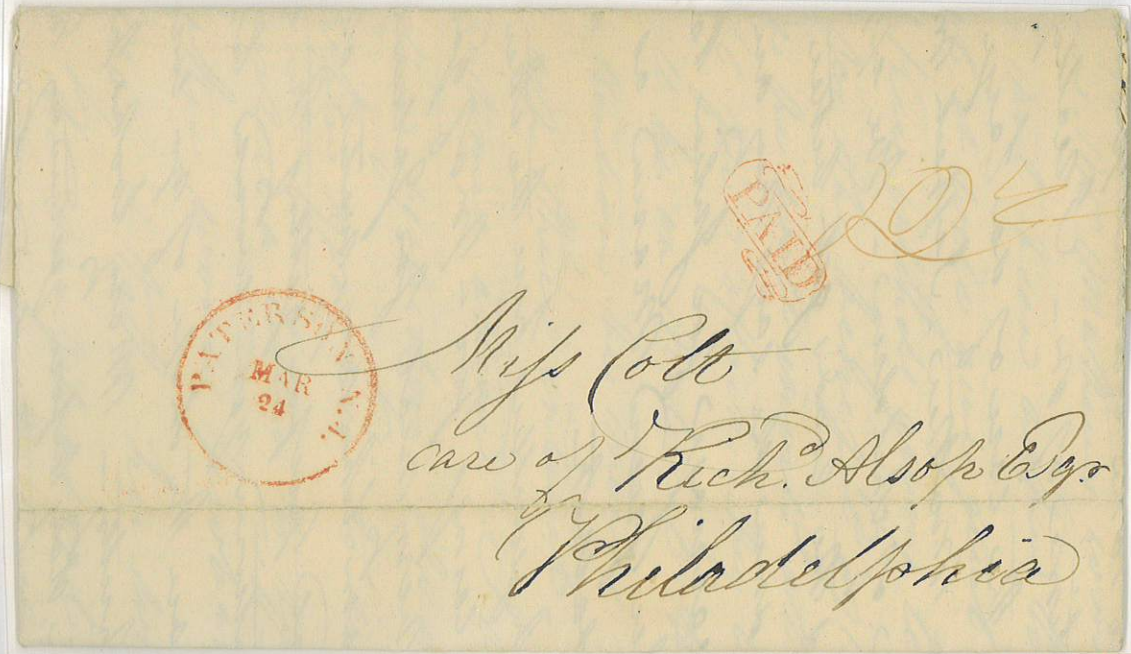 PAID
PATERSON N.J.
MAR
24
Miss Colt
care of Richd. Alsop Esqr.
Philadelphia